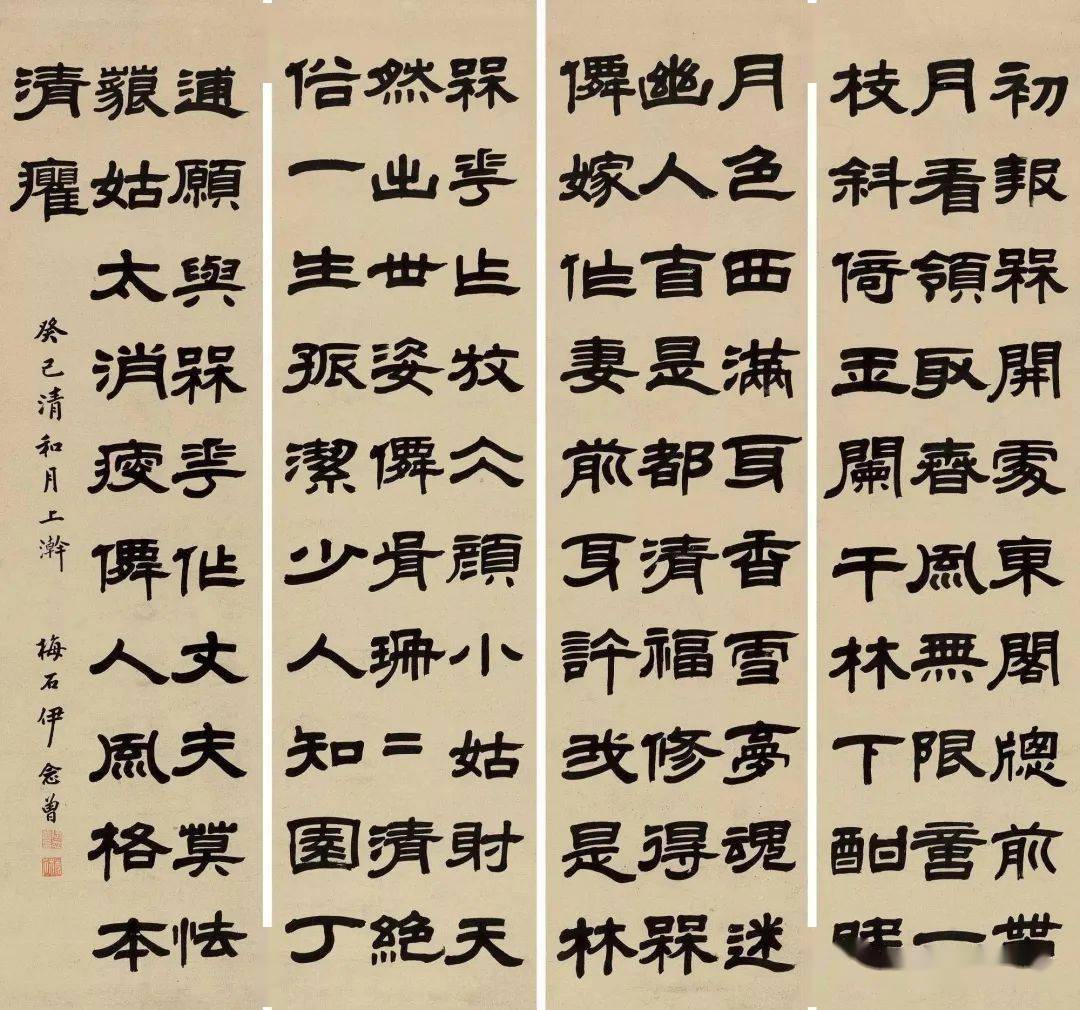 初報槑開處東閣牕前無
月看領取春風無限意一
枝斜倚玉闌干林下酣
月色西滿身香雪夢魂迷
幽人自是都清福修得槑
僊嫁作妻前身許我是林
槑花乍放仌顔小姑射天
然出世姿僊骨珊二清絕
俗一生孤潔少人知園丁
逋願與槑花作丈夫莫怯
藐姑太消瘦僊人風格本
清癯
癸巳清和月上澣 梅石伊念曾